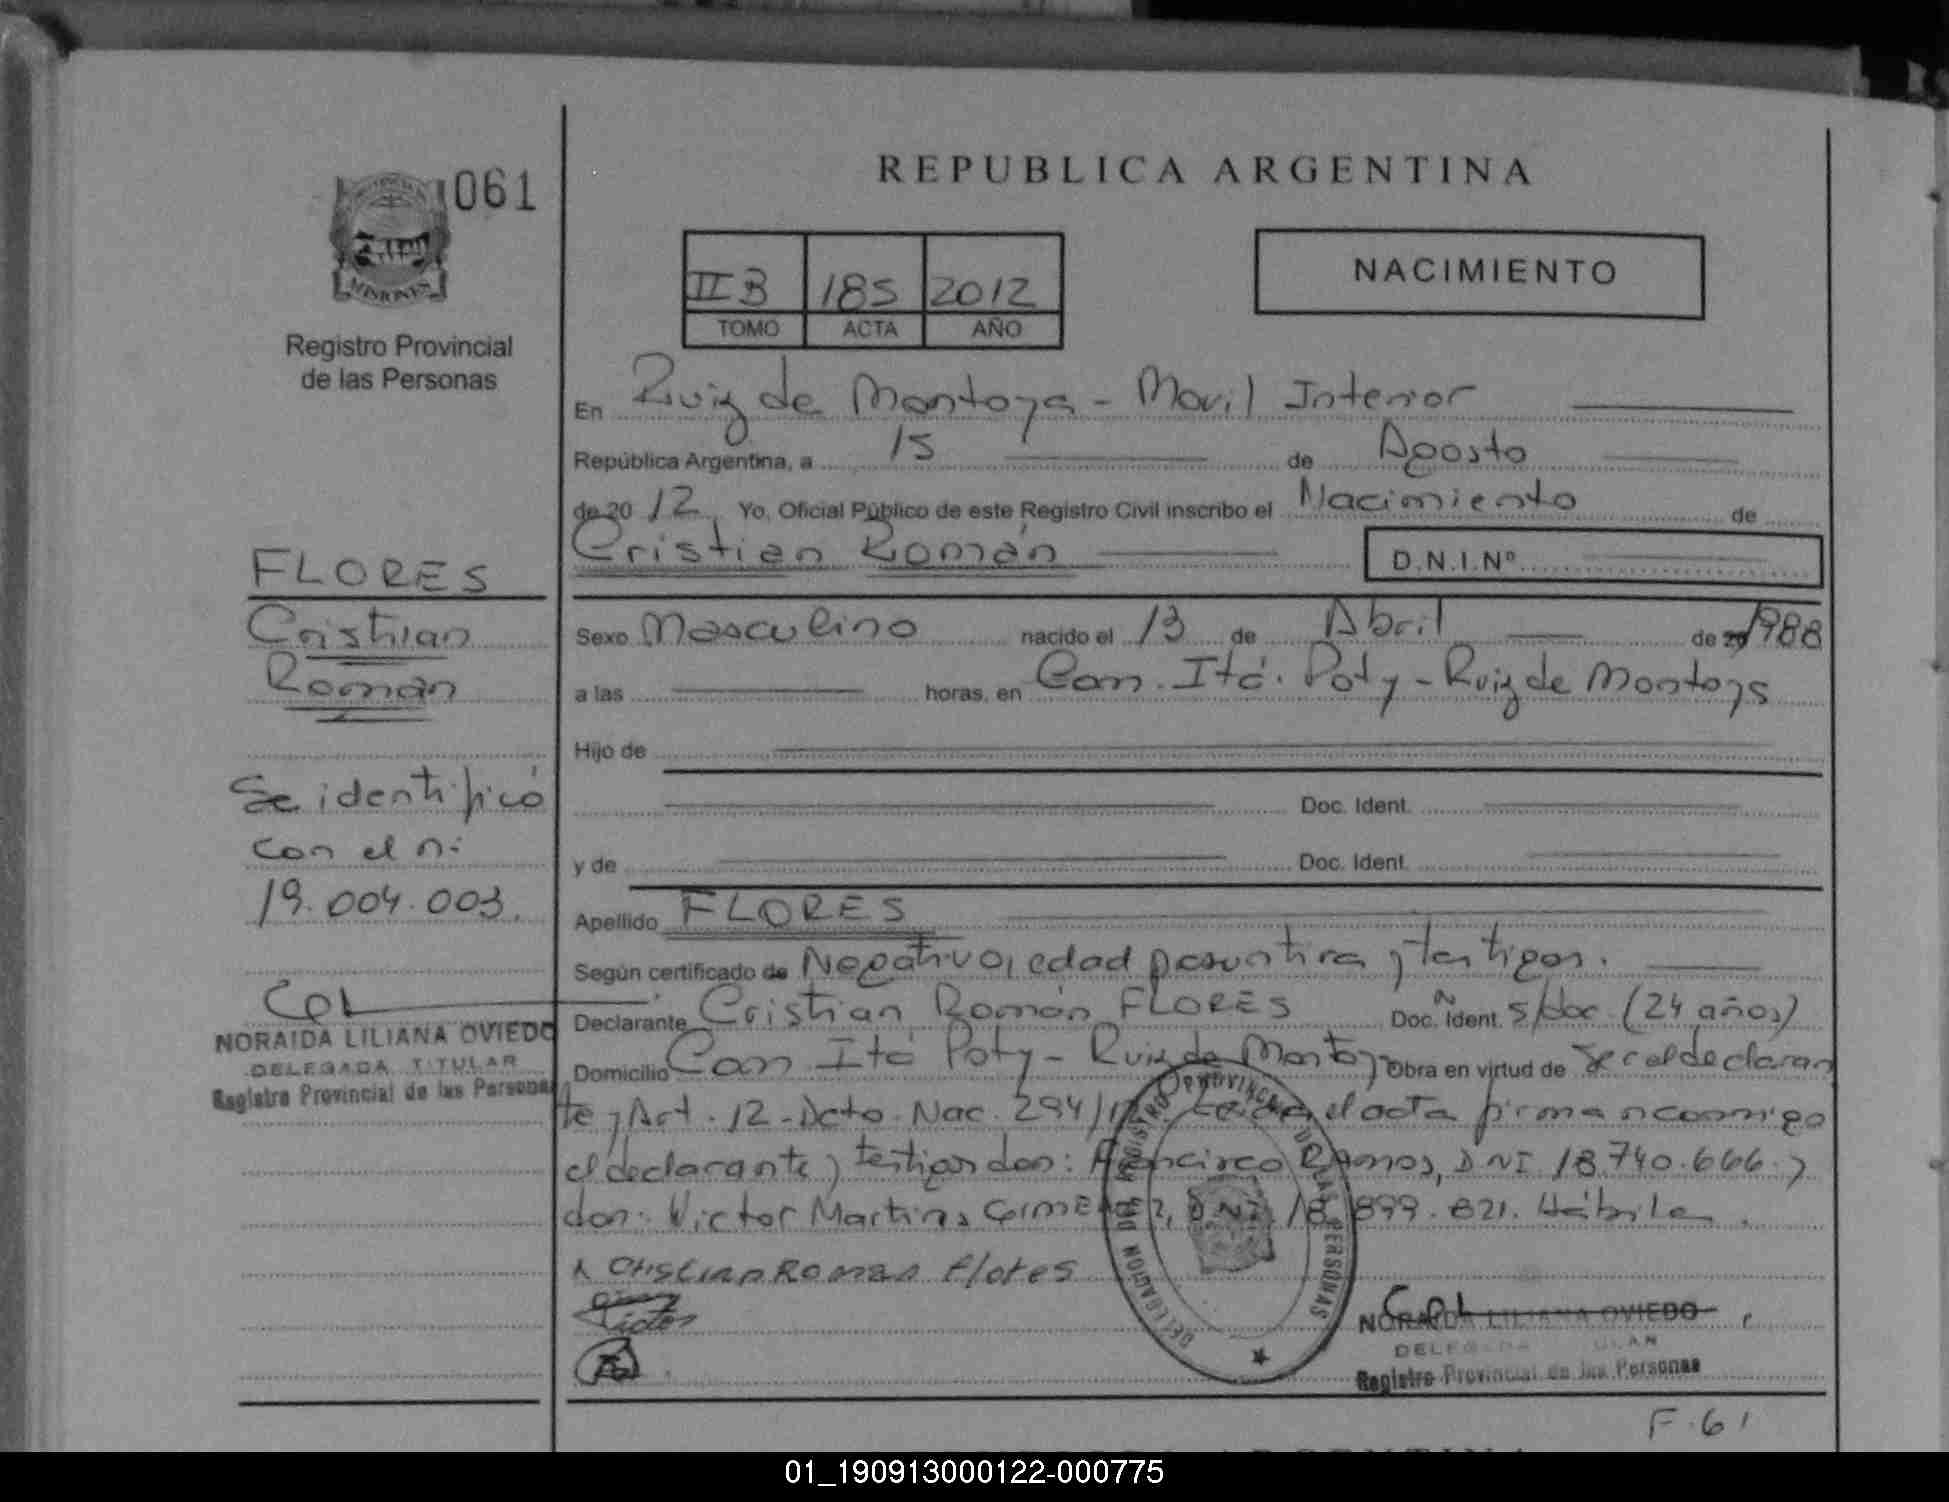 REPUBLICA ARGENTINA
061
MISIONES
Registro Provincial
de las Personas
II B 185 2012
TOMO ACTA AÑO
NACIMIENTO
En Ruiz de Montoya - Movil Interior
República Argentina, a 15 de Agosto
de 20 12 Yo, Oficial Público de este Registro Civil inscribo el Nacimiento de
Cristian Román D.N.I.Nº
Sexo Masculino nacido el 13 de Abril de 1988
a las horas, en Com. Itá. Poty - Ruiz de Montoya
Hijo de
Doc. Ident.
y de Doc. Ident.
Apellido FLORES
Según certificado de Negativo, edad presuntiva y testigos.
Declarante Cristian Román FLORES Doc. Ident. s/doc. (24 años)
Domicilio Com Itá Poty - Ruiz de Montoya Obra en virtud de Ser el declaran
te y Art. 12 - Dcto. Nac. 294/ Leida el acta firman conmigo
el declarante y testigos don: Francisco Ramos, DNI 18.740.666 y
don: Victor Martinez DNI 18.899.821. Hábiles.
Cristian Roman Flores
Victor
NORAIDA LILIANA OVIEDO
DELEGADA
Registro Provincial de las Personas
F. 61
FLORES
Cristian
Román
Se identificó
con el n:
19.004.003.
NORAIDA LILIANA OVIEDO
DELEGADA TITULAR
Registro Provincial de las Personas
DELEGACION REGISTRO PROVINCIAL DE LAS PERSONAS
01_190913000122-000775